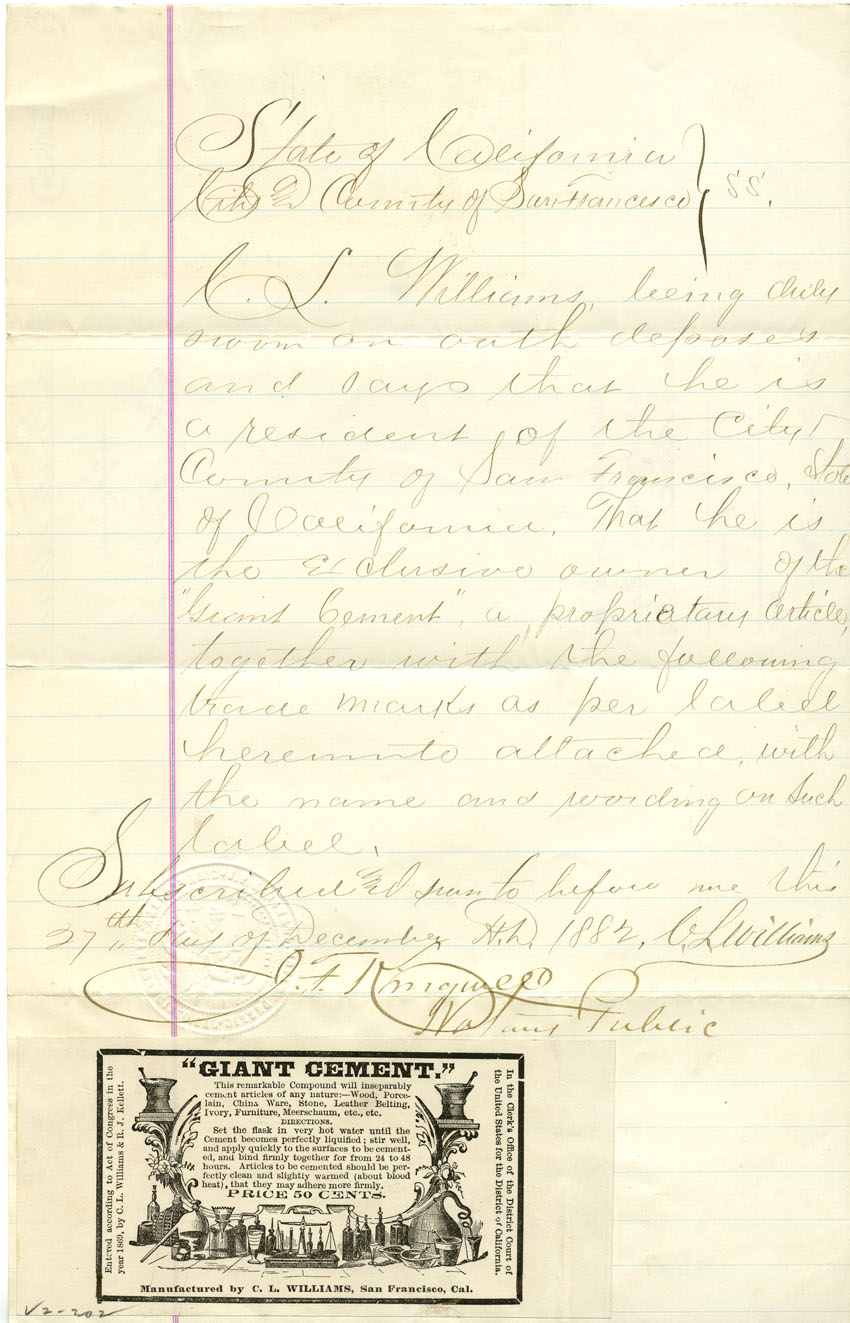 State of California
City & County of San Francesco } SS.
C. L. Williams, being duly
sworn on oath deposes
and says that he is
a resident of the City &
County of San Francisco, State
of California. That he is
the Exclusive owner of the
"Giant Cement", a proprietary article,
together with the following
trade marks as per label
hereunto attached, with
the name and wording on such
label.
Subscribed and sworn to before me this
27th day of December A.D. 1882, C. L. Williams
J. F. Kingwell
Notary Public
"GIANT CEMENT."
This remarkable Compound will inseparably
cement articles of any nature:—Wood, Porce-
lain, China Ware, Stone, Leather Belting,
Ivory, Furniture, Meerschaum, etc., etc.
DIRECTIONS.
Set the flask in very hot water until the
Cement becomes perfectly liquified; stir well,
and apply quickly to the surfaces to be cement-
ed, and bind firmly together for from 24 to 48
hours. Articles to be cemented should be per-
fectly clean and slightly warmed (about blood
heat), that they may adhere more firmly.
PRICE 50 CENTS.
Manufactured by C. L. WILLIAMS, San Francisco, Cal.
Entered according to Act of Congress in the
year 1869, by C. L. Williams & R. J. Kellett.
In the Clerk's Office of the District Court of
the United States for the District of California.
V2-202